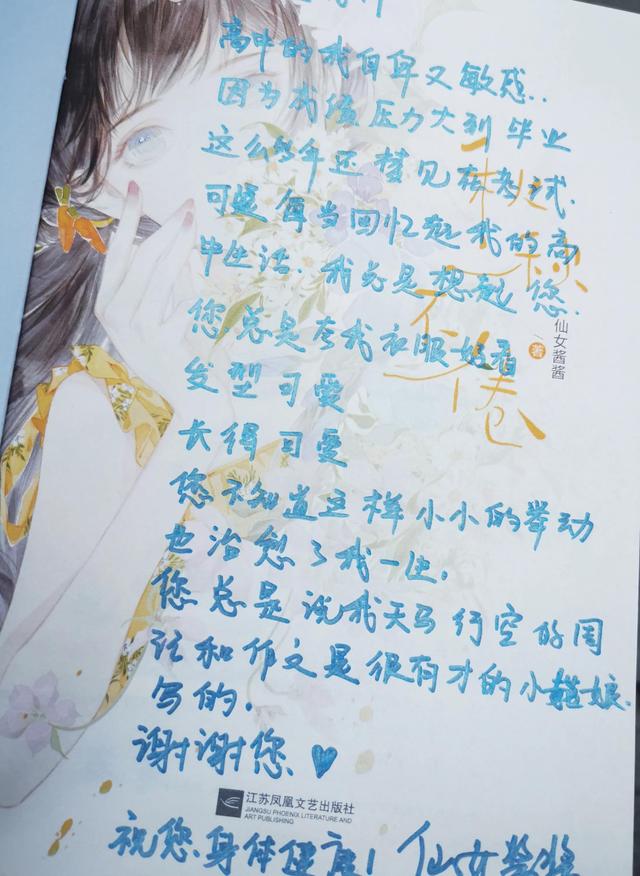 高中的我自卑又敏感..
因为成绩压力大到毕业
这么多年还梦见在考试.
可是每当回忆起我的高
毕生活.我总是想起您.
您总是夸我衣服好看
发型可爱
长得可爱
您不知道这样小小的举动
也治愈了我一生.
您总是说我天马行空的周
记和作文是很有才的小姑娘
写的.
谢谢您 ♥
仙女酱酱
著
江苏凤凰文艺出版社
JIANGSU PHOENIX LITERATURE AND
ART PUBLISHING
祝您身体健康! 仙女酱酱